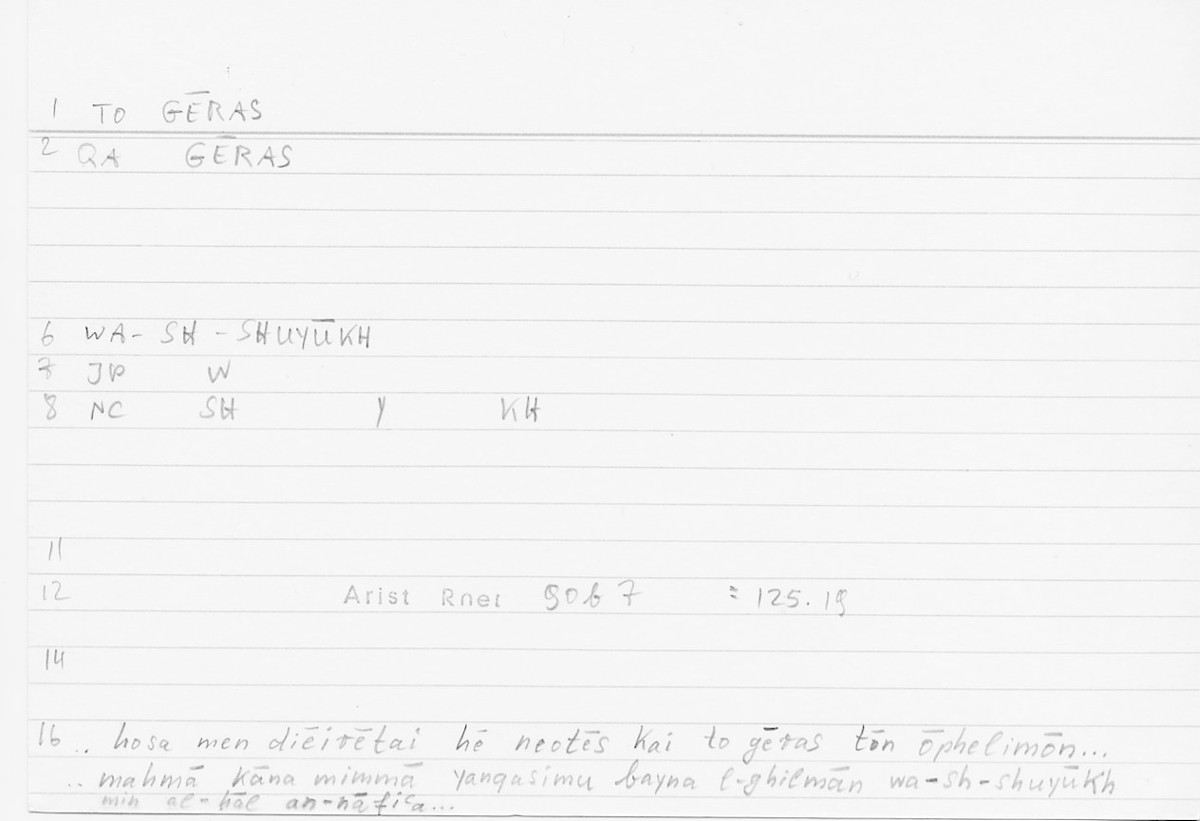 1 TO GĒRAS
2 QA GĒRAS
6 WA-SH-SHUYŪKH
7 JP W
8 NC SH Y KH
11
12 Arist Rhet 90b7 = 125.19
14
16 .. hosa men diēirētai hē neotēs kai to gēras tōn ōphelimōn...
.. mahmā kāna mimmā yanqasimu bayna l-ghilmān wa-sh-shuyūkh
min al-ḥāl an-nāfiʿa...